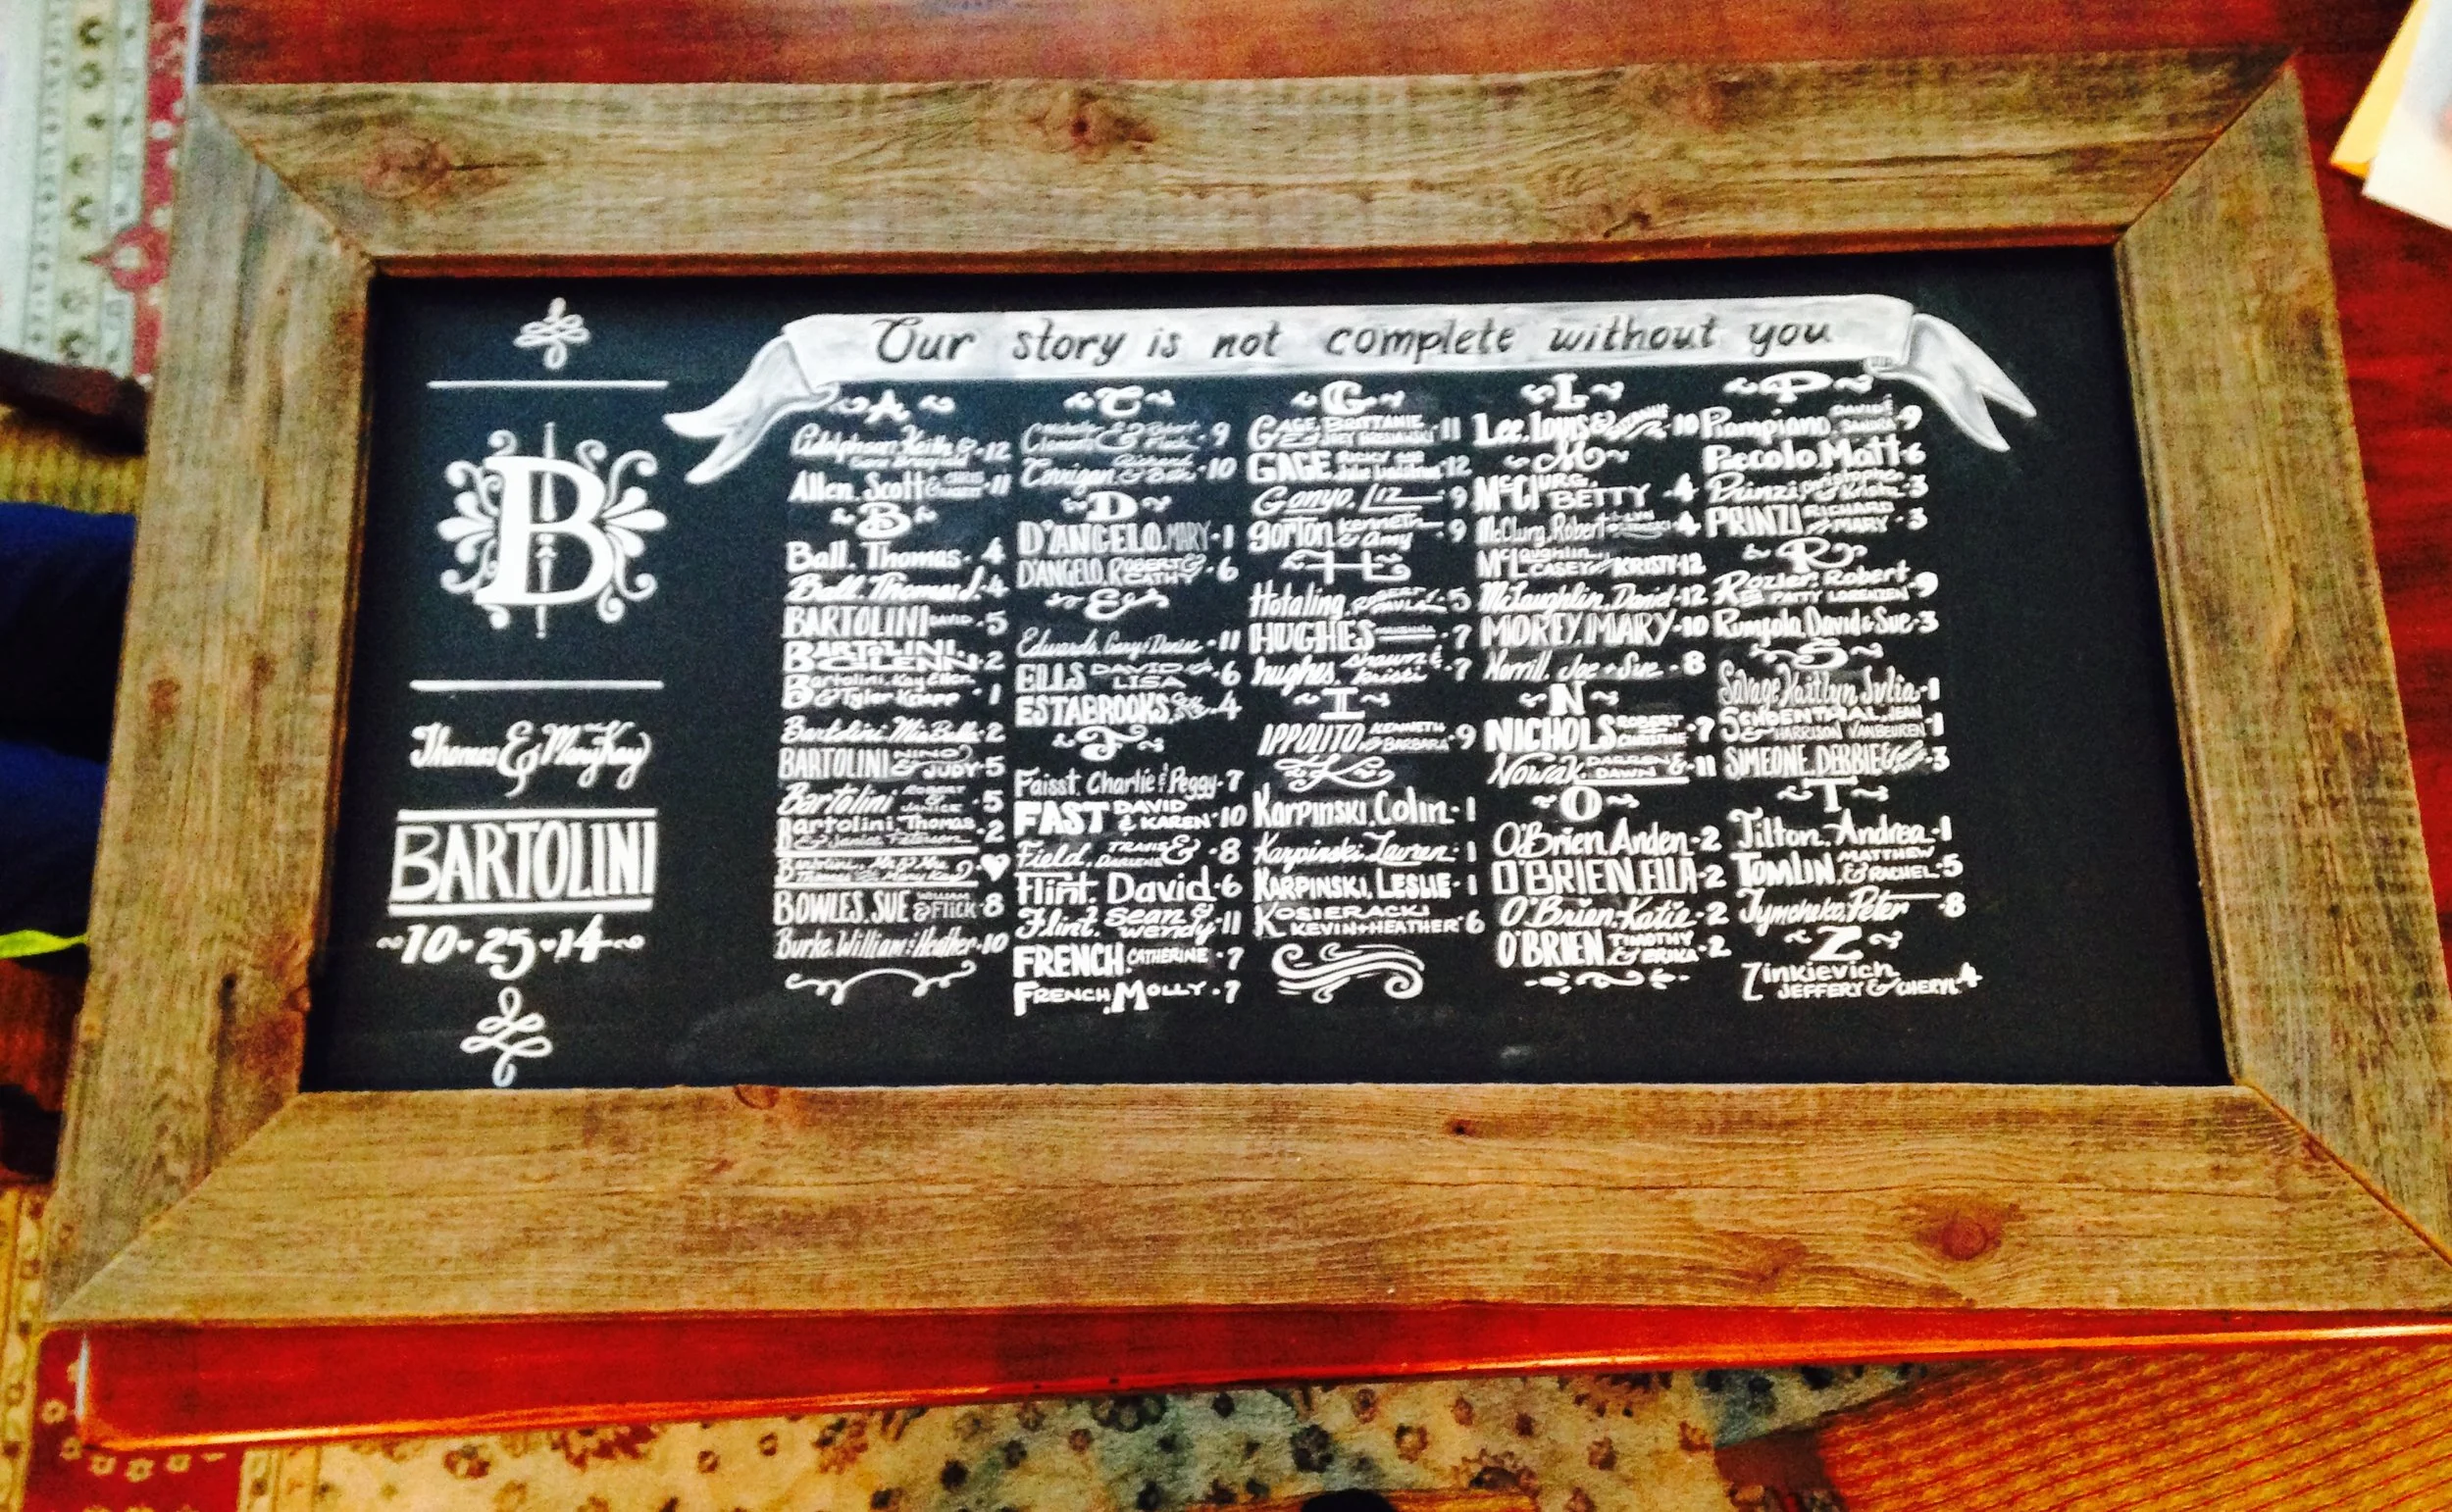 Our story is not complete without you
B
Thomas & Mary Kay
BARTOLINI
~10·25·14~
A
Keith & -12
Allen, Scott & -11
B
Ball, Thomas -4
Ball, Thomas J. -4
BARTOLINI DAVID -5
BARTOLINI, GLENN -2
Bartolini, Kay Ellen
& Tyler Knapp -1
Bartolini, Mia Bella -2
BARTOLINI NINO & JUDY -5
Bartolini ROBERT & JANICE -5
Bartolini, Thomas
& Janice Peterson -2
Bartolini, Mr. & Mrs.
Thomas & Mary Kay ♥
BOWLES, SUE & FLICK -8
Burke, William & Heather -10
C
& Robert -9
Corrigan, & -10
D
D'ANGELO, MARY -1
D'ANGELO, ROBERT & CATHY -6
E
Edwards, Gary & Denise -11
ELLS DAVID & LISA -6
ESTABROOKS, -4
F
Faisst, Charlie & Peggy -7
FAST DAVID & KAREN -10
Field, & -8
Flint, David -6
Flint, Sean & Wendy -11
FRENCH, CATHERINE -7
FRENCH, MOLLY -7
G
GAGE, BRITTANIE & -11
GAGE -12
Gonyo, Liz -9
gorton, Kenneth & Amy -9
H
Hotaling, -5
HUGHES -7
hughes, shawn & kristi -7
I
IPPOLITO, KENNETH & BARBARA -9
K
Karpinski, Colin -1
Karpinski, Lauren -1
KARPINSKI, LESLIE -1
KOSIERACKI
KEVIN + HEATHER 6
L
Lee, Louis & -10
M
McCLURG, BETTY -4
McClurg, Robert -4
McLaughlin, CASEY & KRISTY 12
McLaughlin, David -12
MOREY, MARY -10
Morrill, Joe + Sue -8
N
NICHOLS ROBERT & CHRISTINE -7
Nowak, DARREN & DAWN -11
O
O'Brien, Anden -2
O'BRIEN, ELLA -2
O'Brien, Katie -2
O'BRIEN TIMOTHY & ERIKA -2
P
Piampiano, DAVID & SANDRA -9
Piccolo, Matt -6
Prinzi, Christopher & -3
PRINZI RICHARD & MARY -3
R
Rozler, Robert
& PATTY LORENZEN -9
Rungola, David & Sue -3
S
Savage, Kaitlyn, Julia -1
SCHOENTHAL, JEAN
& HARRISON VANBEUREN -1
SIMEONE, DEBBIE & -3
T
Tilton, Andrea -1
TOMLIN, MATTHEW & RACHEL -5
Tymchuko, Peter -8
Z
Zinkievich
JEFFERY & CHERYL 4